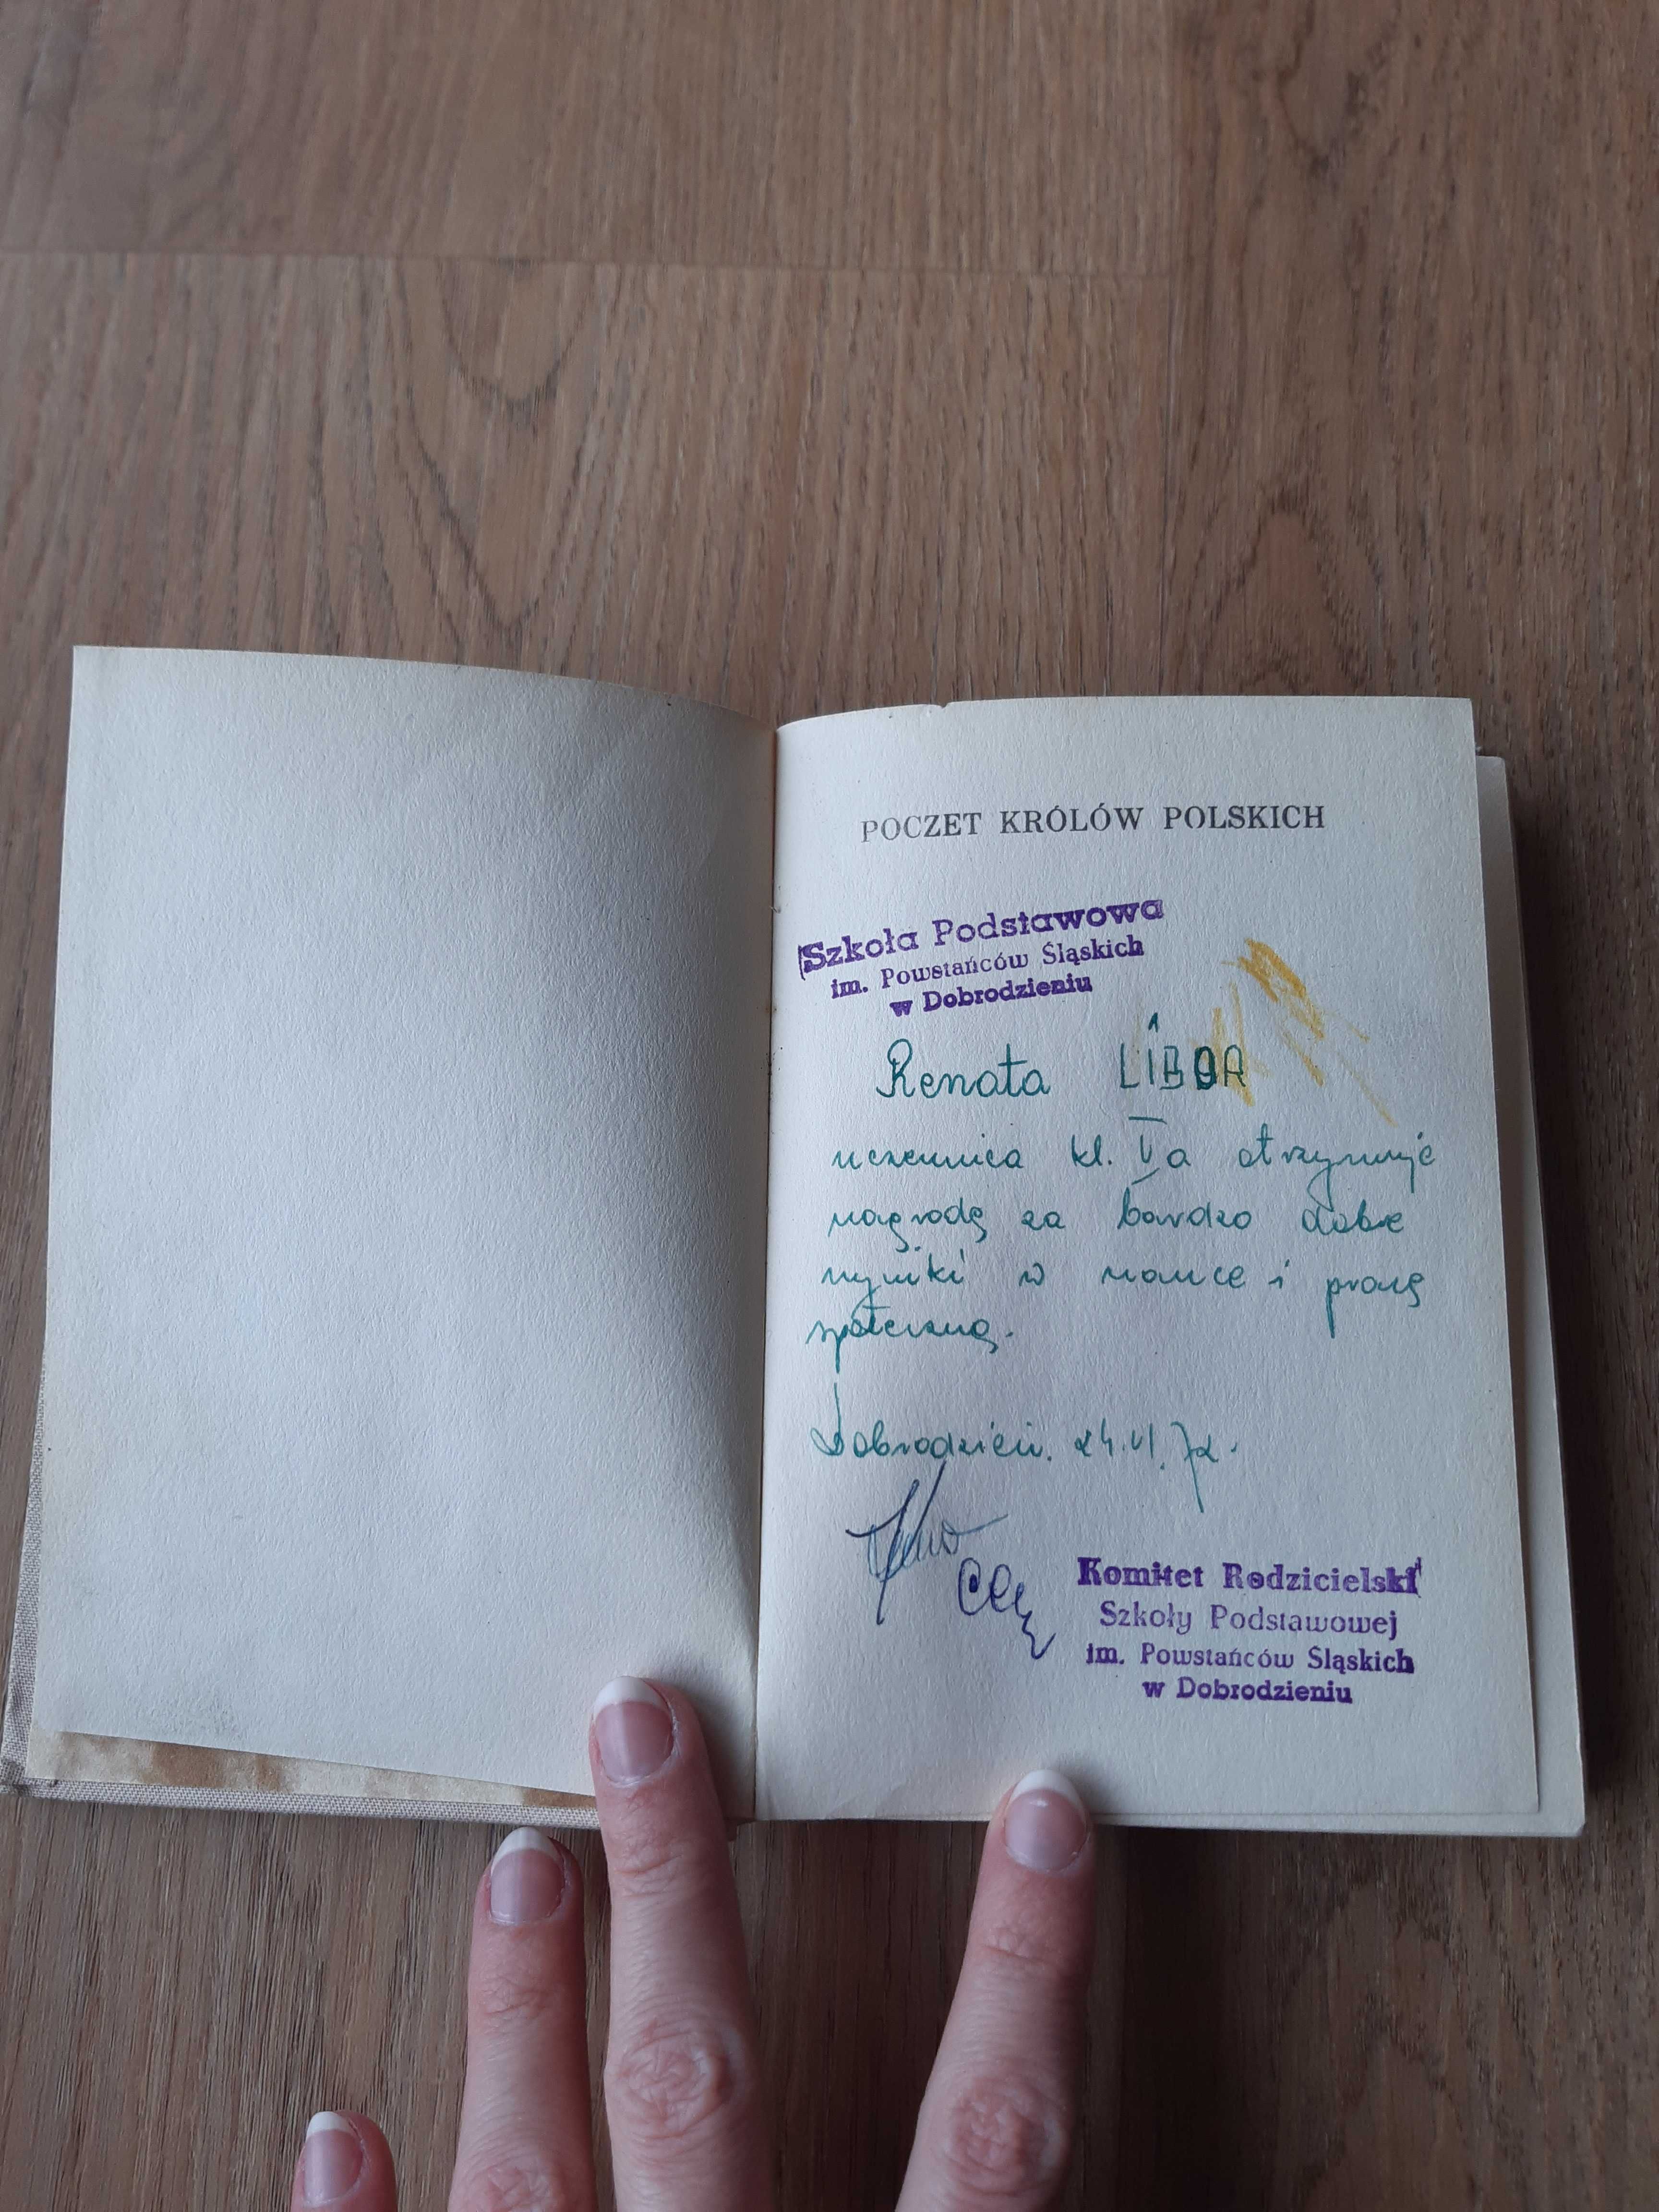 POCZET KRÓLÓW POLSKICH
Szkoła Podstawowa
im. Powstańców Śląskich
w Dobrodzieniu
Renata LIBOR
uczennica kl. Va otrzymuje
nagrodę za bardzo dobre
wyniki w nauce i pracę
społeczną.
Dobrodzień. 24.VI.72.
Komitet Rodzicielski
Szkoły Podstawowej
im. Powstańców Śląskich
w Dobrodzieniu